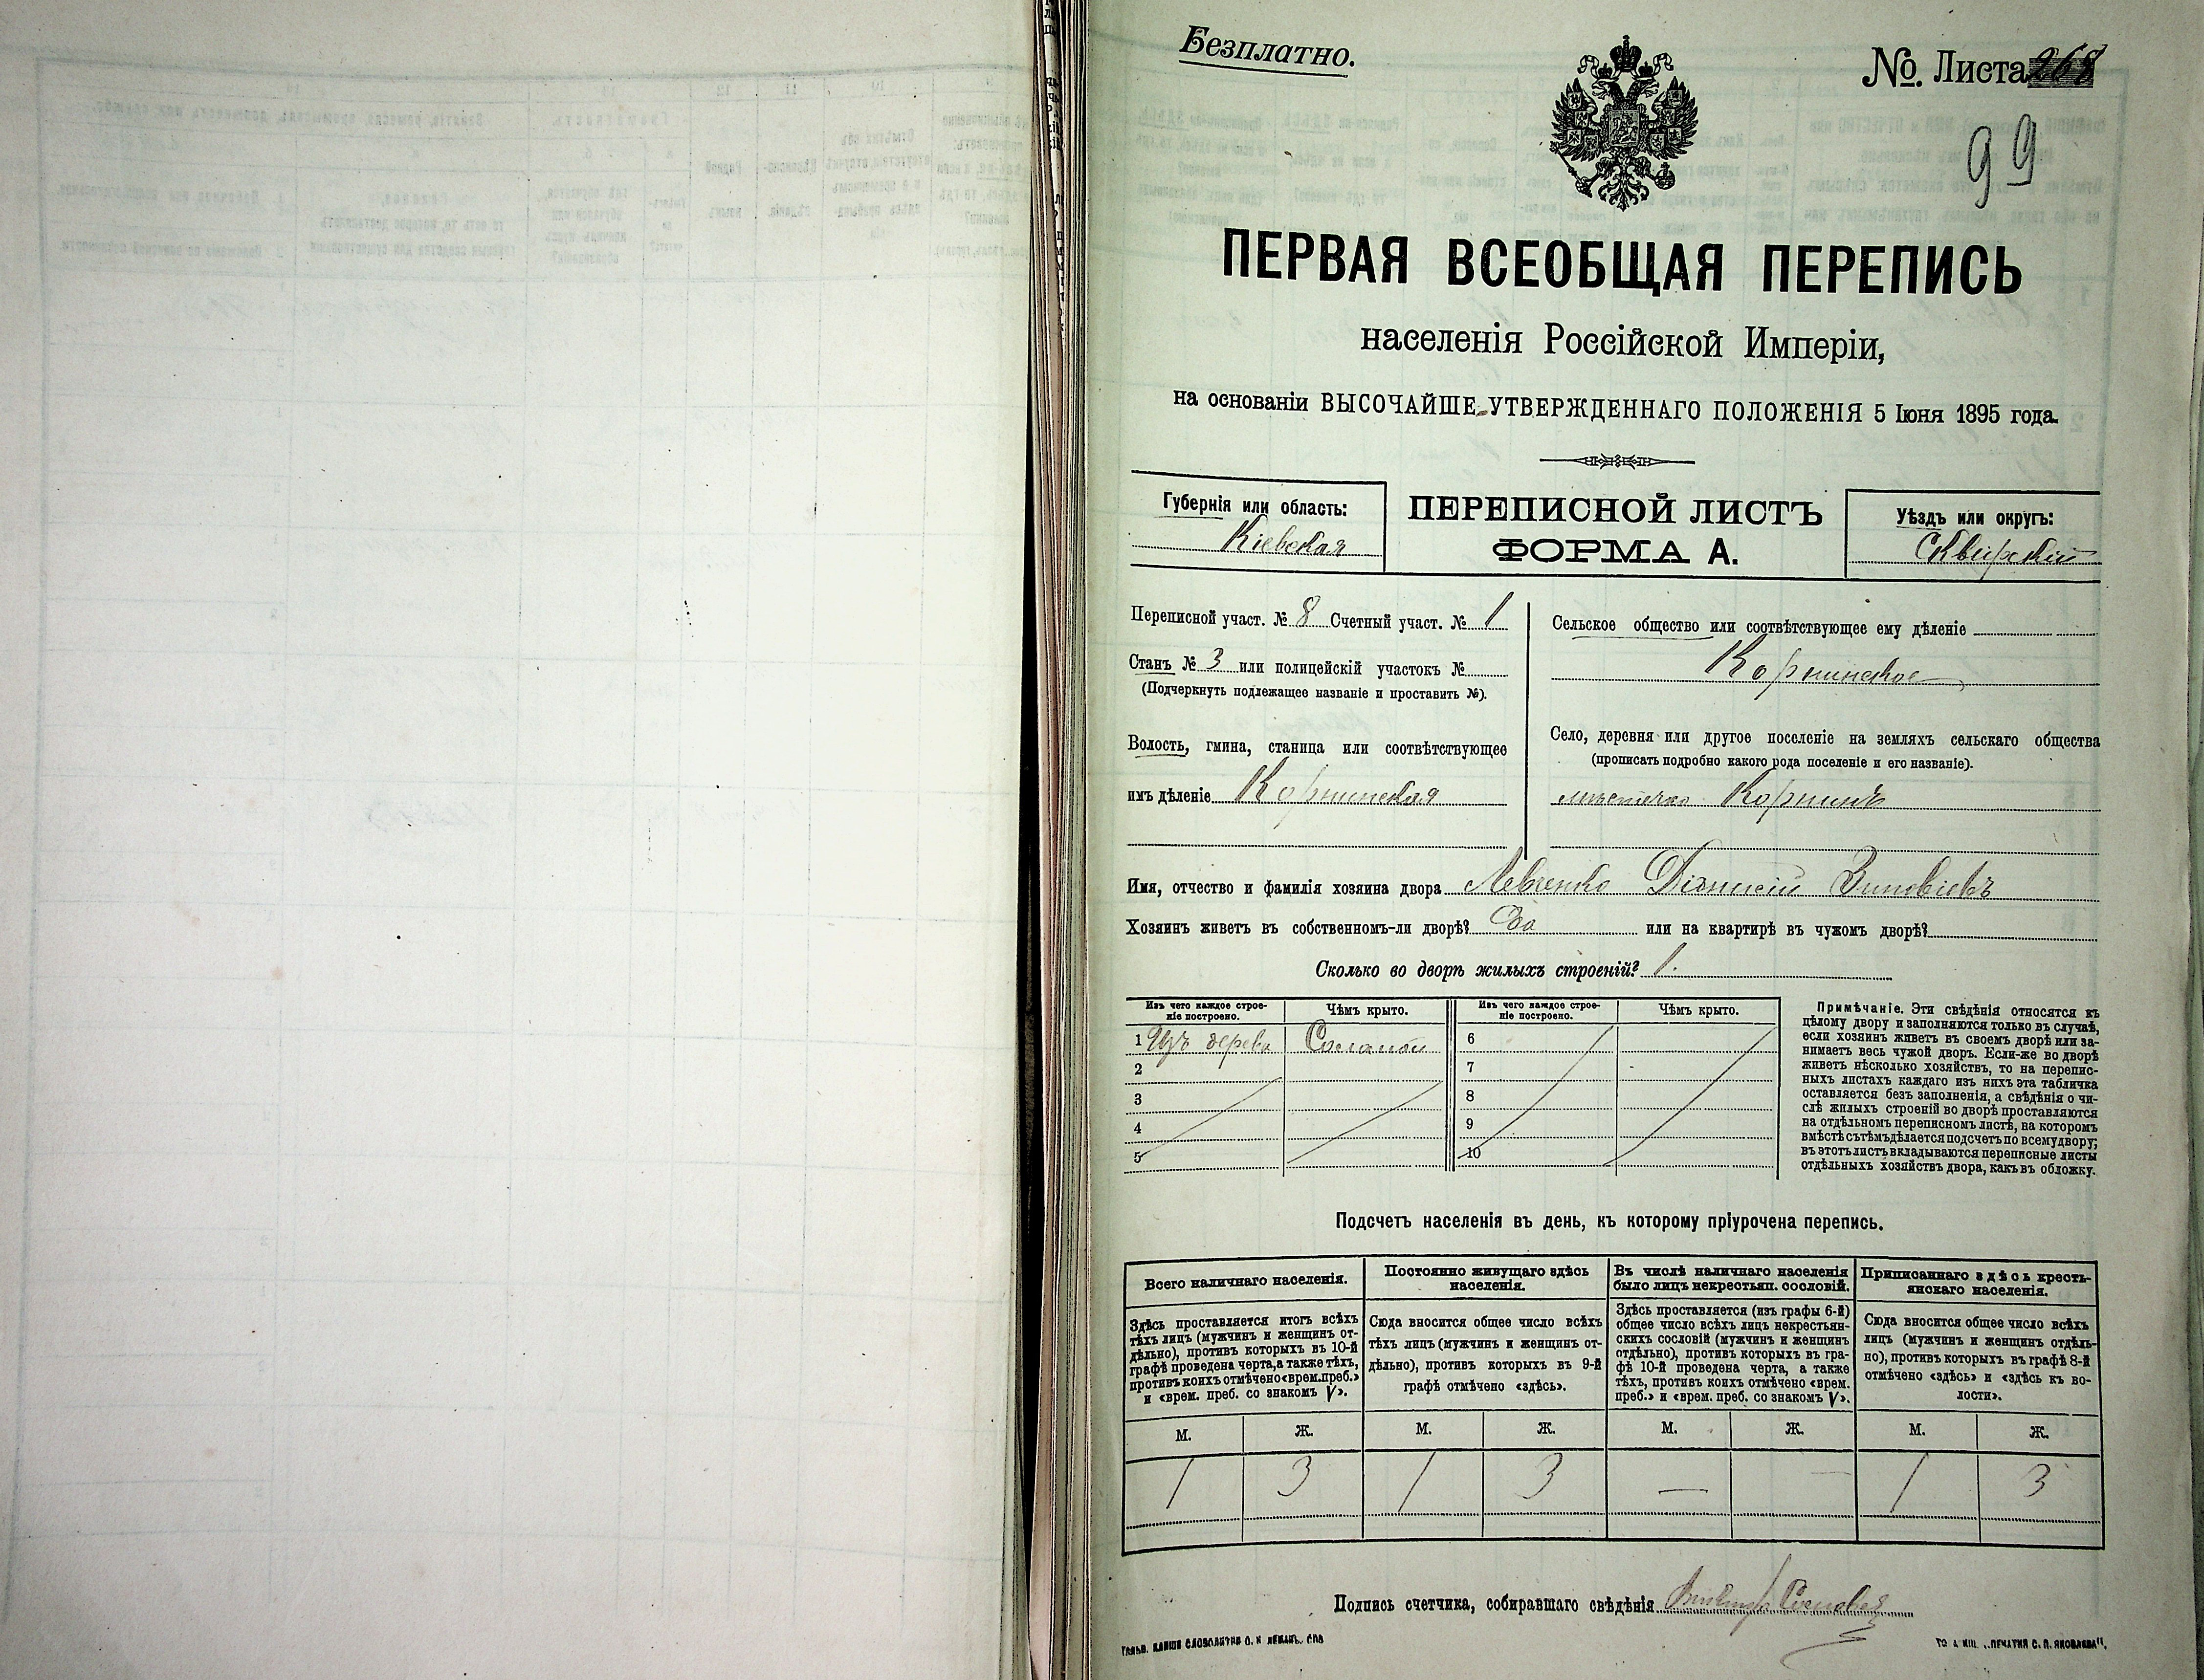 Безплатно.
№. Листа 268
99
ПЕРВАЯ ВСЕОБЩАЯ ПЕРЕПИСЬ
населенія Россійской Имперіи,
на основаніи ВЫСОЧАЙШЕ УТВЕРЖДЕННАГО ПОЛОЖЕНІЯ 5 Іюня 1895 года.
Губернія или область:
Кіевская
ПЕРЕПИСНОЙ ЛИСТЪ
ФОРМА А.
Уѣздъ или округъ:
Сквирскій
Переписной участ. № 8 Счетный участ. № 1
Станъ № 3 или полицейскій участокъ №
(Подчеркнуть подлежащее названіе и проставить №).
Волость, гмина, станица или соотвѣтствующее
имъ дѣленіе Корнинская
Сельское общество или соотвѣтствующее ему дѣленіе
Корнинское
Село, деревня или другое поселеніе на земляхъ сельскаго общества
(прописать подробно какого рода поселеніе и его названіе).
мѣстечко Корнинъ
Имя, отчество и фамилія хозяина двора Левченко Діонисій Зиновіевъ
Хозяинъ живетъ въ собственномъ-ли дворѣ? Да или на квартирѣ въ чужомъ дворѣ?
Сколько во дворѣ жилыхъ строеній? 1.
Изъ чего каждое строе-
ніе построено.
Чѣмъ крыто.
Изъ чего каждое строе-
ніе построено.
Чѣмъ крыто.
1 Изъ дерева Соломой 6
2 7
3 8
4 9
5 10
Примѣчаніе. Эти свѣдѣнія относятся къ
цѣлому двору и заполняются только въ случаѣ,
если хозяинъ живетъ въ своемъ дворѣ или за-
нимаетъ весь чужой дворъ. Если-же во дворѣ
живетъ нѣсколько хозяйствъ, то на перепис-
ныхъ листахъ каждаго изъ нихъ эта табличка
оставляется безъ заполненія, а свѣдѣнія о чи-
слѣ жилыхъ строеній во дворѣ проставляются
на отдѣльномъ переписномъ листѣ, на которомъ
вмѣстѣ съ тѣмъ дѣлается подсчетъ по всему двору;
въ этотъ листъ вкладываются переписные листы
отдѣльныхъ хозяйствъ двора, какъ въ обложку.
Подсчетъ населенія въ день, къ которому пріурочена перепись.
Всего наличнаго населенія.
Здѣсь проставляется итогъ всѣхъ
тѣхъ лицъ (мужчинъ и женщинъ от-
дѣльно), противъ которыхъ въ 10-й
графѣ проведена черта, а также тѣхъ,
противъ коихъ отмѣчено «врем. преб.»
и «врем. преб. со знакомъ V».
Постоянно живущаго здѣсь
населенія.
Сюда вносится общее число всѣхъ
тѣхъ лицъ (мужчинъ и женщинъ от-
дѣльно), противъ которыхъ въ 9-й
графѣ отмѣчено «здѣсь».
Въ числѣ наличнаго населенія
было лицъ некрестьян. сословій.
Здѣсь проставляется (изъ графы 6-й)
общее число всѣхъ лицъ некрестьян-
скихъ сословій (мужчинъ и женщинъ
отдѣльно), противъ которыхъ въ гра-
фѣ 10-й проведена черта, а также
тѣхъ, противъ коихъ отмѣчено «врем.
преб.» и «врем. преб. со знакомъ V».
Приписаннаго здѣсь кресть-
янскаго населенія.
Сюда вносится общее число всѣхъ
лицъ (мужчинъ и женщинъ отдѣль-
но), противъ которыхъ въ графѣ 8-й
отмѣчено «здѣсь» и «здѣсь къ во-
лости».
М. Ж. М. Ж. М. Ж. М. Ж.
1 3 1 3 — — 1 3
Подпись счетчика, собиравшаго свѣдѣнія